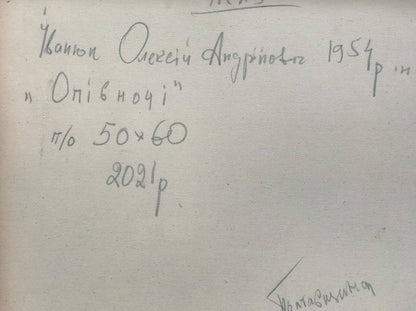 Іванюк Олексій Андрійович 1954 р.н
"Опівночі"
п/о 50×60
2021р.
Полтавщина